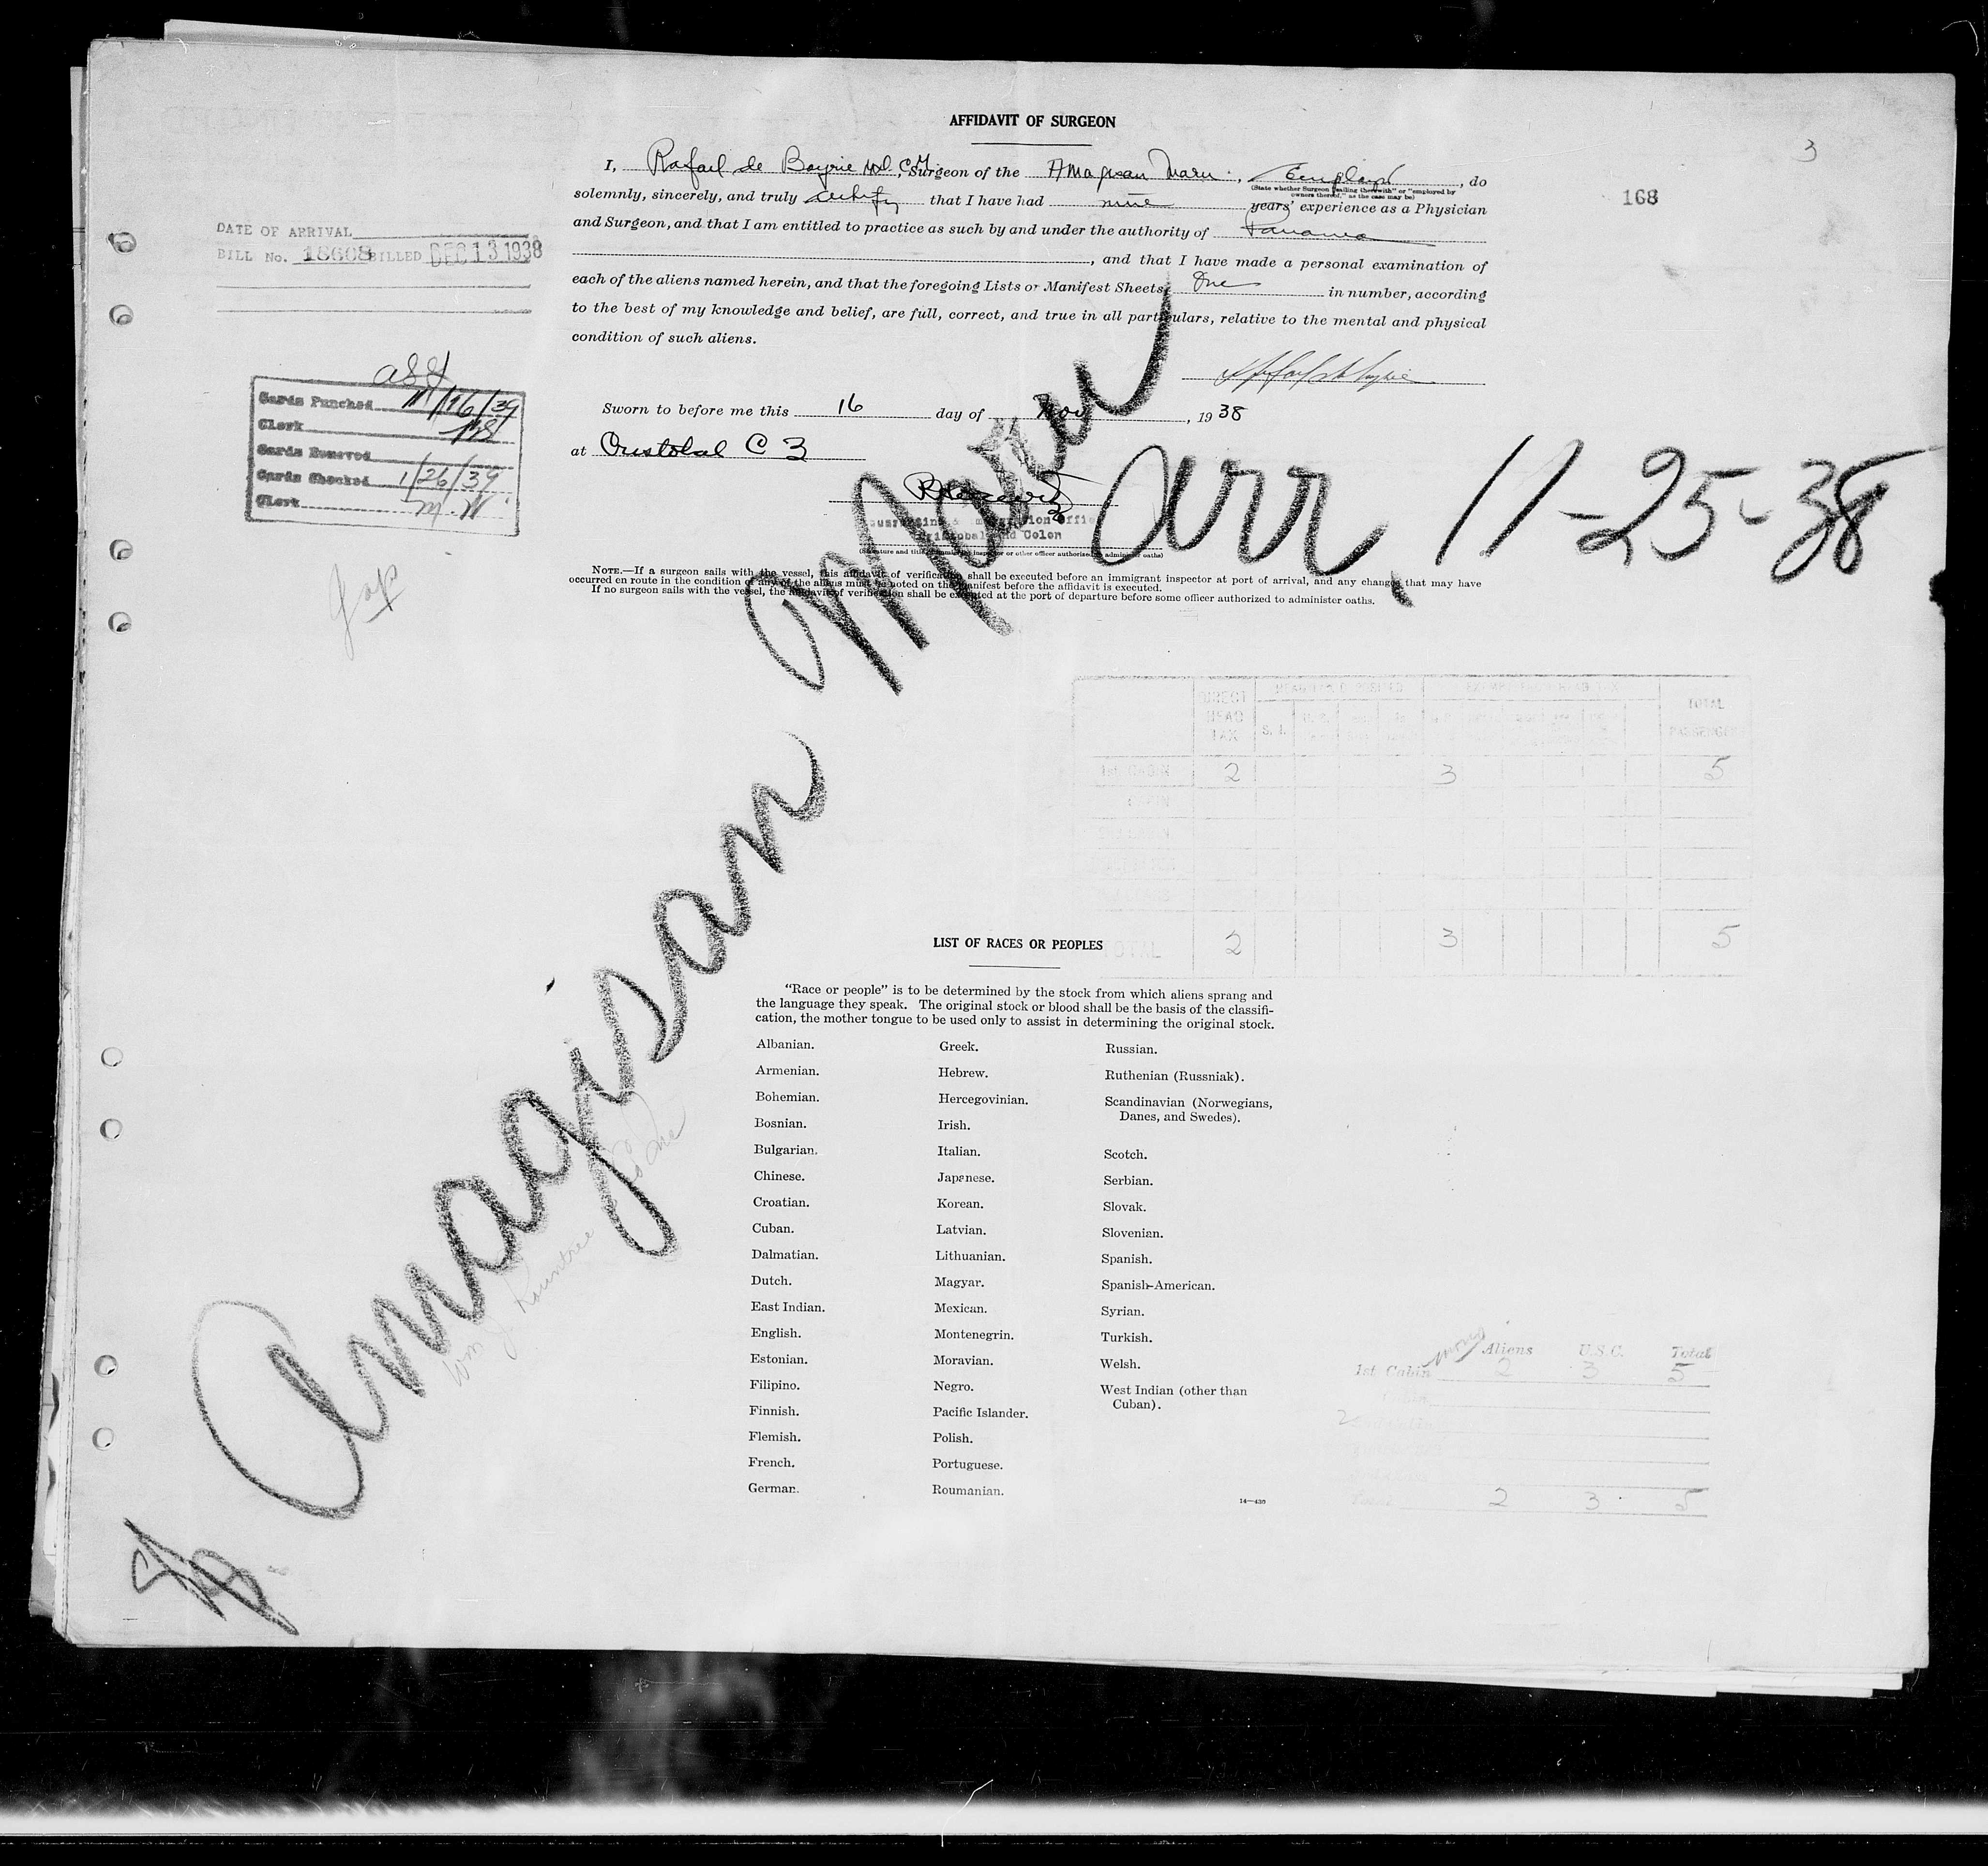 AFFIDAVIT OF SURGEON
3
168
I, Rafael de Boyrie M.D. C.M., Surgeon of the Amagisan Maru, Employed, do
(State whether Surgeon "sailing therewith" or "employed by
owners thereof," as the case may be)
solemnly, sincerely, and truly certify that I have had nine years' experience as a Physician
and Surgeon, and that I am entitled to practice as such by and under the authority of Panama
, and that I have made a personal examination of
each of the aliens named herein, and that the foregoing Lists or Manifest Sheets, One in number, according
to the best of my knowledge and belief, are full, correct, and true in all particulars, relative to the mental and physical
condition of such aliens.
DATE OF ARRIVAL
BILL No. 18608 BILLED DEC 13 1938
Cards Punched 1/26/39
Clerk
Cards Removed
Cards Checked 1/26/39
Clerk M. W
Jap
Sworn to before me this 16 day of Nov, 1938
at Cristobal C Z
Quarantine & Immigration Office
Cristobal and Colon
(Signature and title of immigrant inspector or other officer authorized to administer oaths)
arr. 11-25-38
NOTE.—If a surgeon sails with the vessel, this affidavit of verification shall be executed before an immigrant inspector at port of arrival, and any changes that may have
occurred en route in the condition of any of the aliens must be noted on the manifest before the affidavit is executed.
If no surgeon sails with the vessel, the affidavit of verification shall be executed at the port of departure before some officer authorized to administer oaths.
Amagisan Maru
DIRECT HEAD TAX
TOTAL PASSENGERS
1st CABIN 2 3 5
TOTAL 2 3 5
LIST OF RACES OR PEOPLES
"Race or people" is to be determined by the stock from which aliens sprang and
the language they speak. The original stock or blood shall be the basis of the classifi-
cation, the mother tongue to be used only to assist in determining the original stock.
Albanian.
Armenian.
Bohemian.
Bosnian.
Bulgarian.
Chinese.
Croatian.
Cuban.
Dalmatian.
Dutch.
East Indian.
English.
Estonian.
Filipino.
Finnish.
Flemish.
French.
German.
Greek.
Hebrew.
Hercegovinian.
Irish.
Italian.
Japanese.
Korean.
Latvian.
Lithuanian.
Magyar.
Mexican.
Montenegrin.
Moravian.
Negro.
Pacific Islander.
Polish.
Portuguese.
Roumanian.
Russian.
Ruthenian (Russniak).
Scandinavian (Norwegians,
Danes, and Swedes).
Scotch.
Serbian.
Slovak.
Slovenian.
Spanish.
Spanish-American.
Syrian.
Turkish.
Welsh.
West Indian (other than
Cuban).
14—430
Wm J Rountree
Aliens U.S.C. Total
1st Cabin 2 3 5
Total 2 3 5